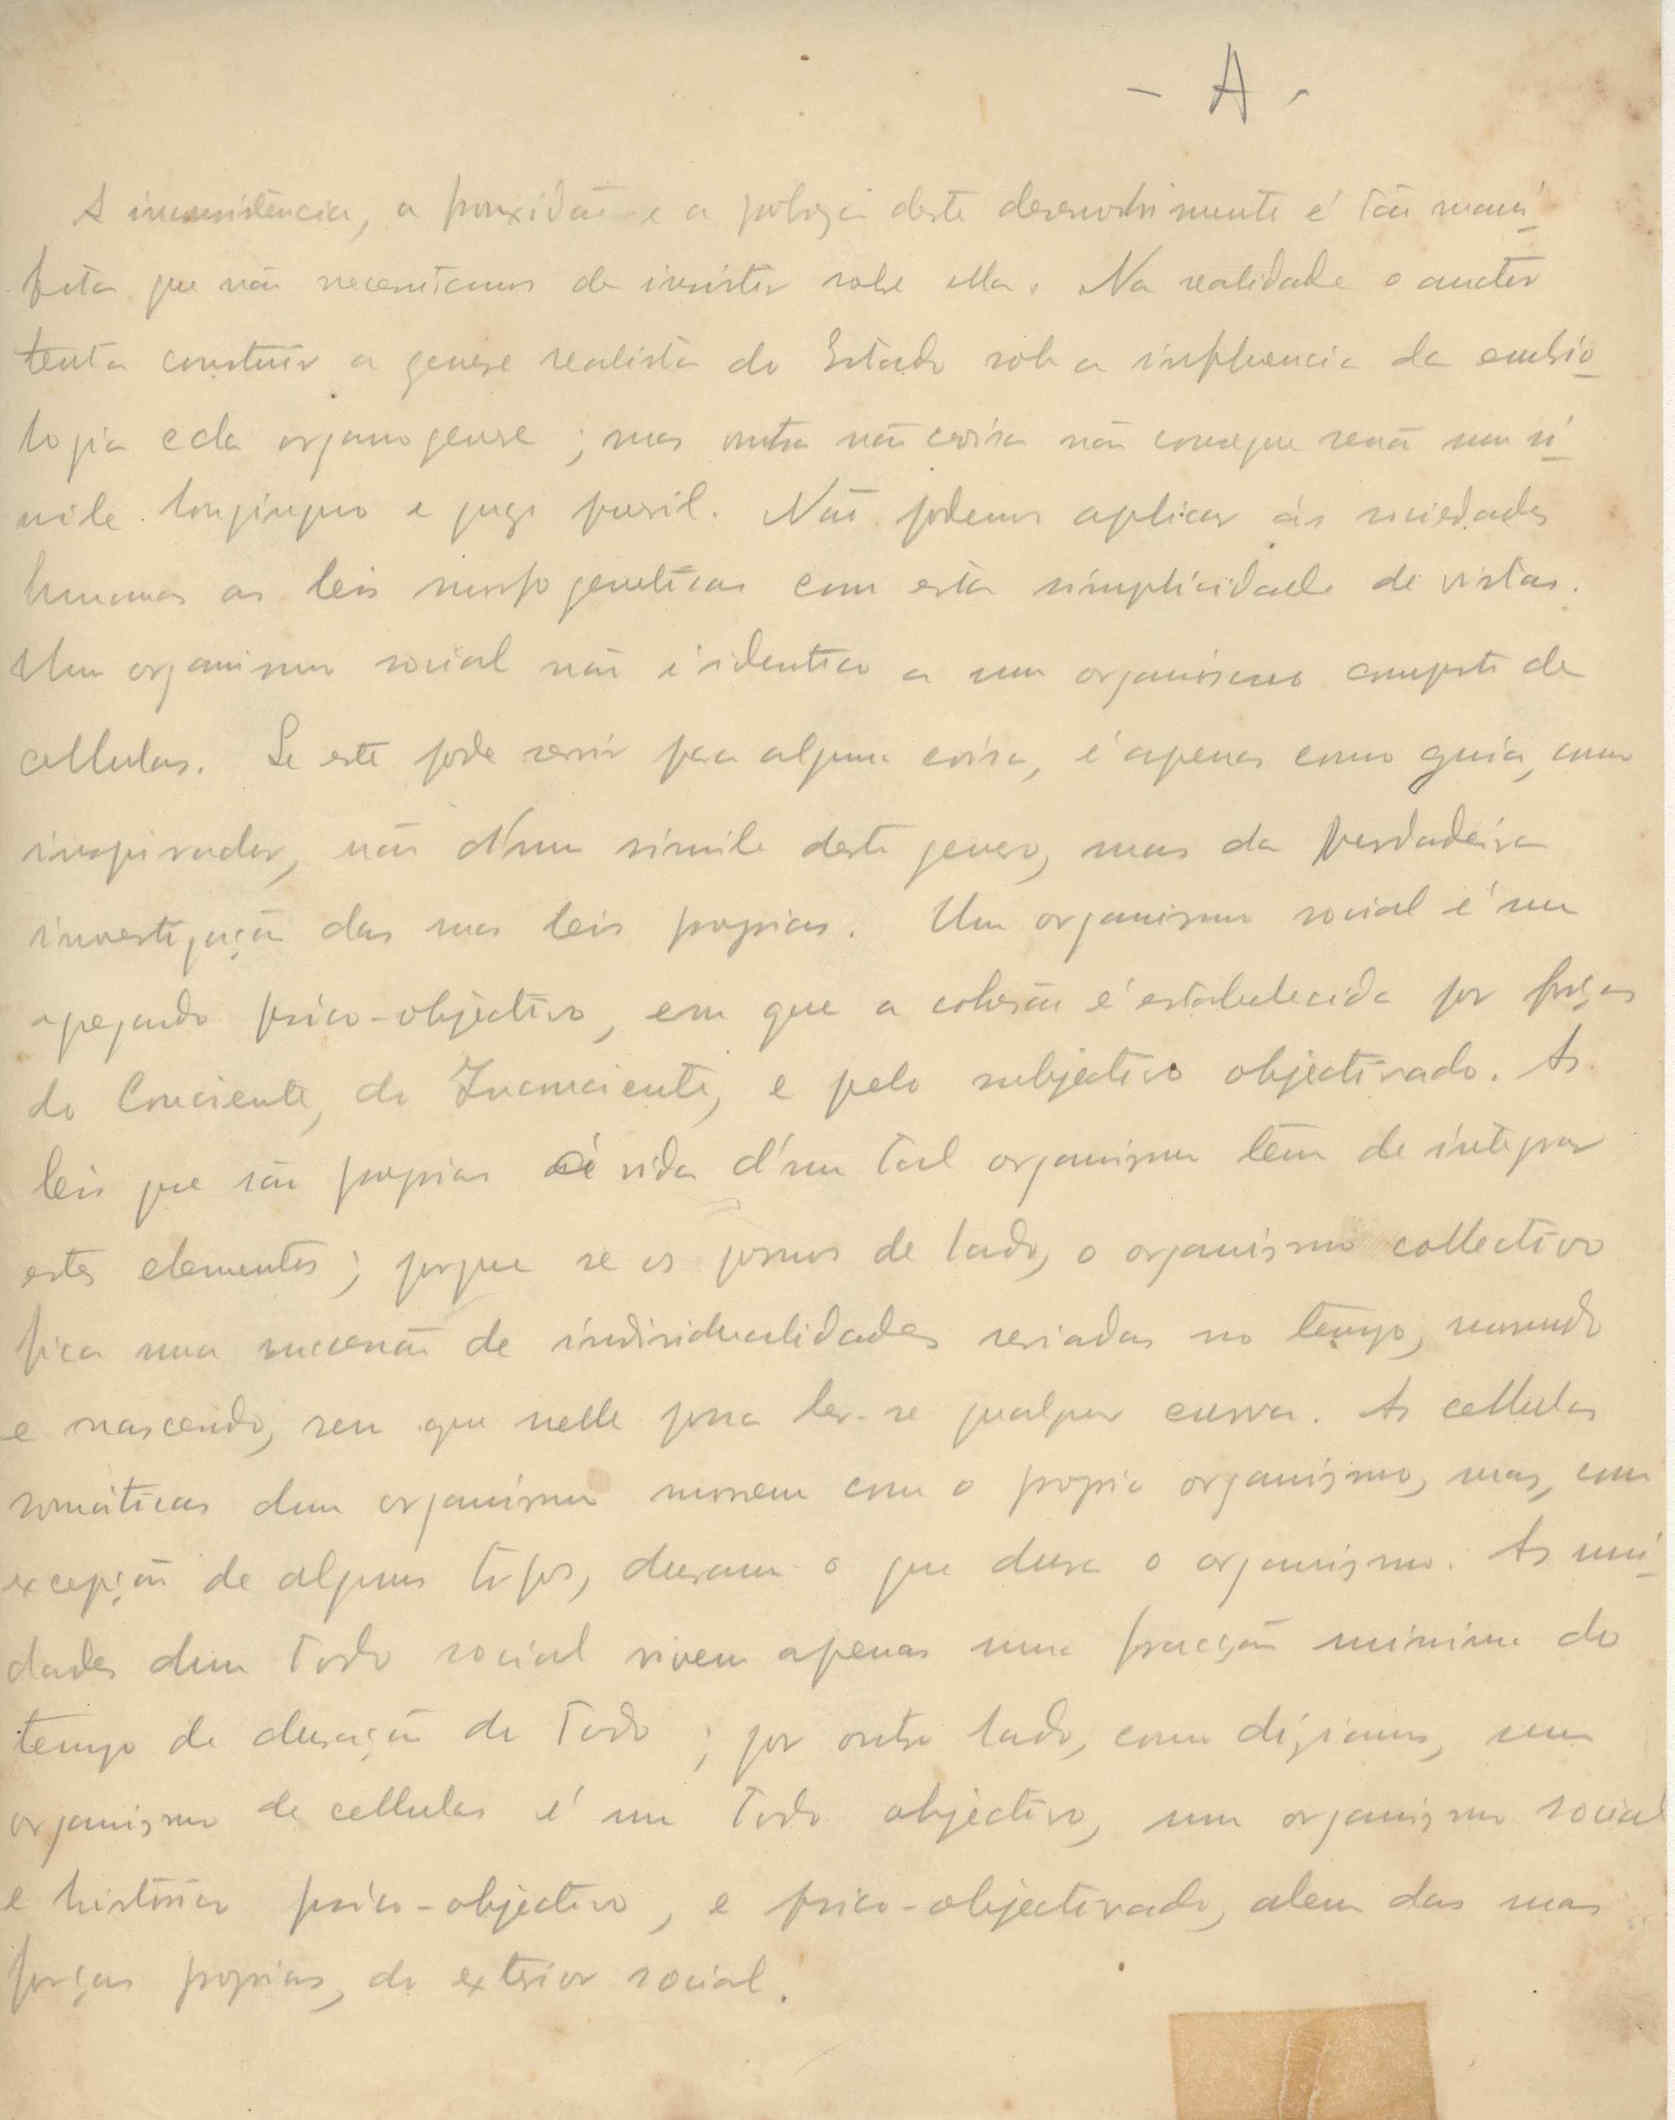 - A -
A inconsistencia, a frouxidão e a pobreza deste desenvolvimento é tão mani
festa que não necessitamos de insistir sobre ella. Na realidade o auctor
tenta construir a genese realista do Estado sob a influencia da embrio
logia e da organogenese ; mas outra não coisa não consegue senão um si
mile longinquo e quasi pueril. Não podemos aplicar ás sociedades
humanas as leis morfogeneticas com esta simplicidade de vistas.
Um organismo social não é identico a um organismo composto de
cellulas. Se este pode servir para alguma coisa, é apenas como guia, como
inspirador, não d'um simile deste genero, mas da verdadeira
investigação das suas leis proprias. Um organismo social é um
agregado psico-objectivo, em que a cohesão é estabelecida por forças
do Conciente, do Inconciente, e pelo subjectivo objectivado. As
leis que são proprias á vida d'um tal organismo têm de integrar
estes elementos ; porque se os pomos de lado, o organismo collectivo
fica uma successão de individualidades seriadas no tempo, morrendo
e nascendo, sem que nelle possa ler-se qualquer curva. As cellulas
somáticas dum organismo morrem com o proprio organismo, mas, com
excepção de alguns tipos, duram o que dura o organismo. As uni
dades dum Todo social vivem apenas uma fracção minima do
tempo de duração do Todo ; por outro lado, como diziamos, um
organismo de cellulas é um Todo objectivo, um organismo social
e historico psico-objectivo, e psico-objectivado, alem das suas
forças proprias, do exterior social.